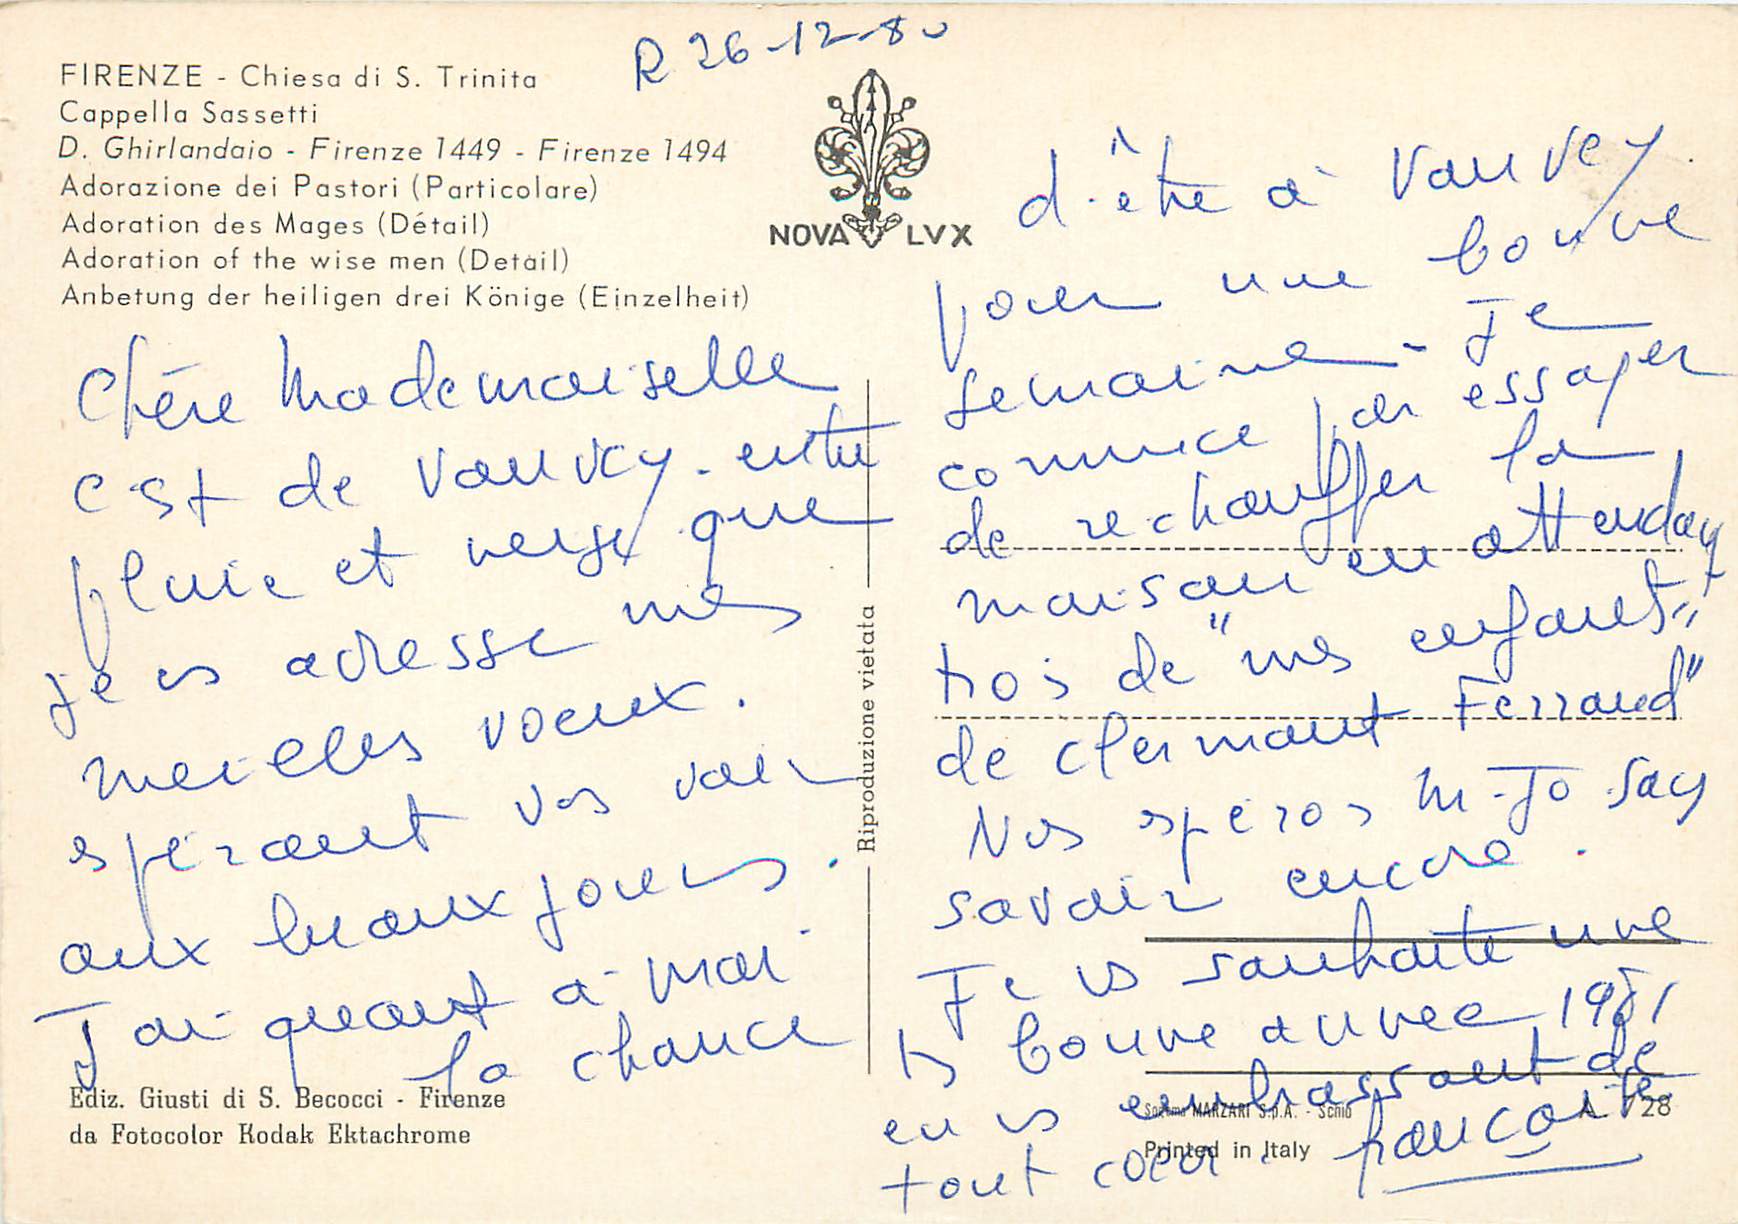 R 26-12-80
FIRENZE - Chiesa di S. Trinita
Cappella Sassetti
D. Ghirlandaio - Firenze 1449 - Firenze 1494
Adorazione dei Pastori (Particolare)
Adoration des Mages (Détail)
Adoration of the wise men (Detail)
Anbetung der heiligen drei Könige (Einzelheit)
NOVA LVX
Chère Mademoiselle
c'est de Vauvey - entre
pluie et neige que
je vs adresse mes
meilles voeux.
espérant vos voir
aux beaux jours.
J'ai quant à moi
la chance
Riproduzione vietata
Ediz. Giusti di S. Becocci - Firenze
da Fotocolor Kodak Ektachrome
d'être à Vauvey
pour une bonne
semaine - Je
commce par essayer
de rechauffer la
maison en attendant
trois de "mes enfants"
de Clermont Ferrand"
Nos espéros M-Jo
savoir encore.
Je vs souhaite une
ts bonne année 1981
en vs embrassant de
tout coeur. Françoise
MARZARI S.p.A. - Schio
Printed in Italy